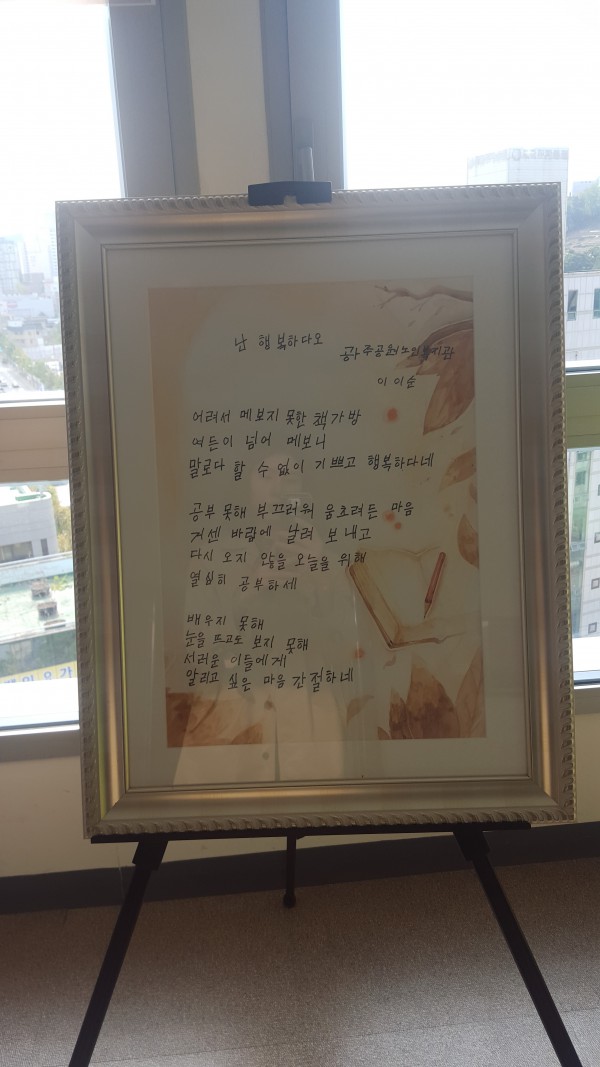 난 행복하다오
공주공원노인복지관
이이순
어려서 메보지 못한 책가방
여든이 넘어 메보니
말로다 할 수 없이 기쁘고 행복하다네
공부 못해 부끄러워 움츠려든 마음
거센 바람에 날려 보내고
다시 오지 않을 오늘을 위해
열심히 공부하세
배우지 못해
눈을 뜨고도 보지 못해
서러운 이들에게
알리고 싶은 마음 간절하네